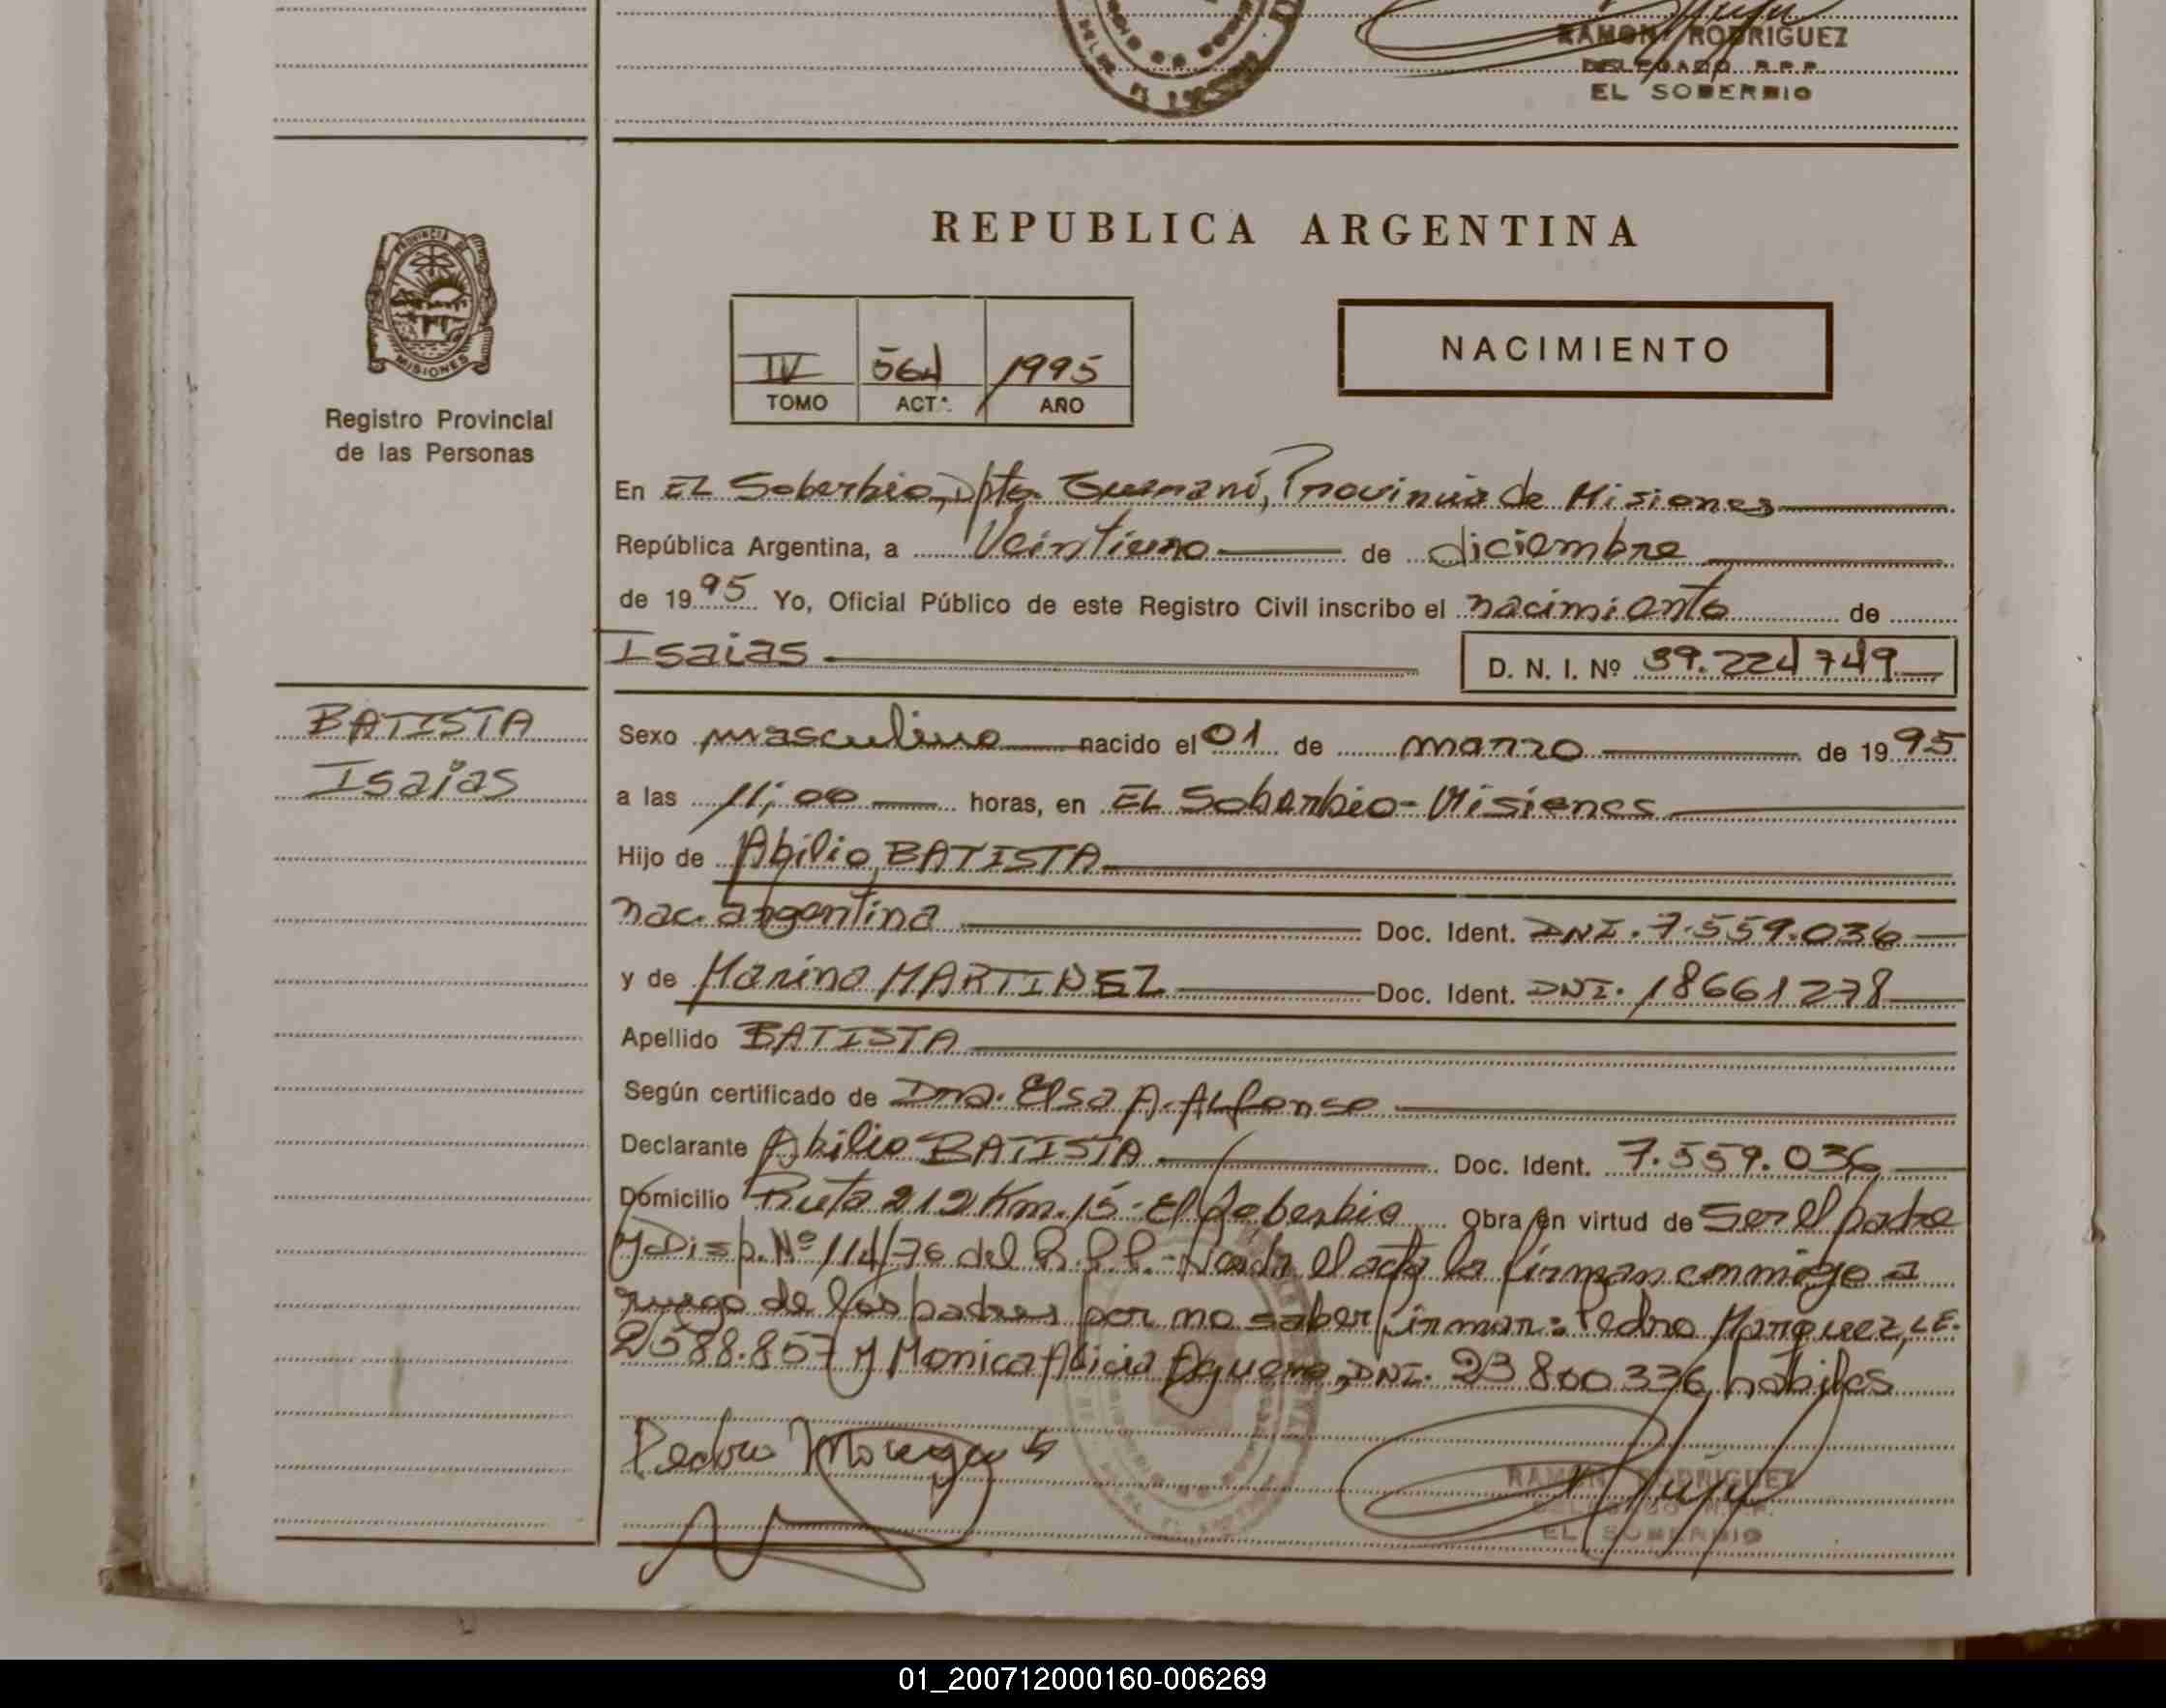 RAMON RODRIGUEZ
DELEGADO R.P.P.
EL SOBERBIO
PROVINCIA DE
MISIONES
Registro Provincial
de las Personas
REPUBLICA ARGENTINA
IV 564 1995
TOMO ACT. AÑO
NACIMIENTO
En EL Soberbio, Dpto Guaraní, Provincia de Misiones
República Argentina, a Veintiuno de diciembre
de 1995 Yo, Oficial Público de este Registro Civil inscribo el nacimiento de
Isaias D. N. I. Nº 39.224749
BATISTA
Isaias
Sexo masculino nacido el 01 de marzo de 1995
a las 11;00 horas, en EL Soberbio-Misiones
Hijo de Abilio BATISTA
nac. argentina Doc. Ident. DNI. 7.559.036
y de Marina MARTINEZ Doc. Ident. DNI. 18661278
Apellido BATISTA
Según certificado de Dra. Elsa A. Alfonso
Declarante Abilio BATISTA Doc. Ident. 7.559.036
Domicilio Ruta 212 Km. 15-El Soberbio Obra en virtud de Ser el padre
y Disp. Nº 114/76 del R.P.P.- Leída el acta la firman conmigo a
ruego de los padres por no saber firmar: Pedro Marquez, LE.
2588.857 y Monica Alicia Aguero, DNI. 23800336, habiles
Pedro
RAMON RODRIGUEZ
DELEGADO R.P.P.
EL SOBERBIO
01_200712000160-006269